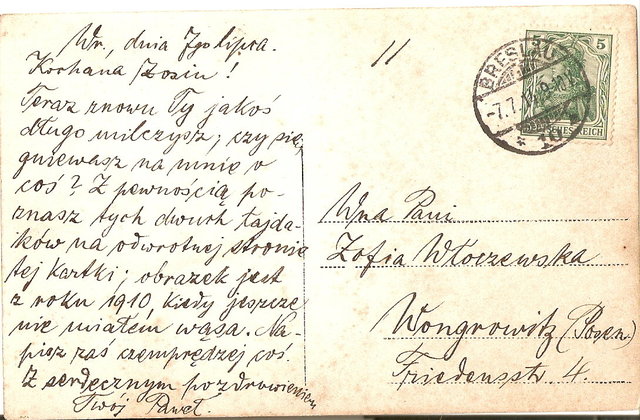 Wr., dnia 7go lipca.
Kochana Zosiu!
Teraz znowu Ty jakoś
długo milczysz; czy się
gniewasz na mnie o
coś? Z pewnością po-
znasz tych dwuch łajda-
ków na odwrotnej stronie
tej kartki; obrazek jest
z roku 1910, kiedy jeszcze
nie miałem wąsa. Na-
pisz zaś czemprędzej coś.
Z serdecznym pozdrowieniem
Twój Paweł.
11
BRESLAU
-7.7.
5 5
Wna Pani
Zofia Włoszewska
Wongrowitz (Posen)
Friedensstr. 4.